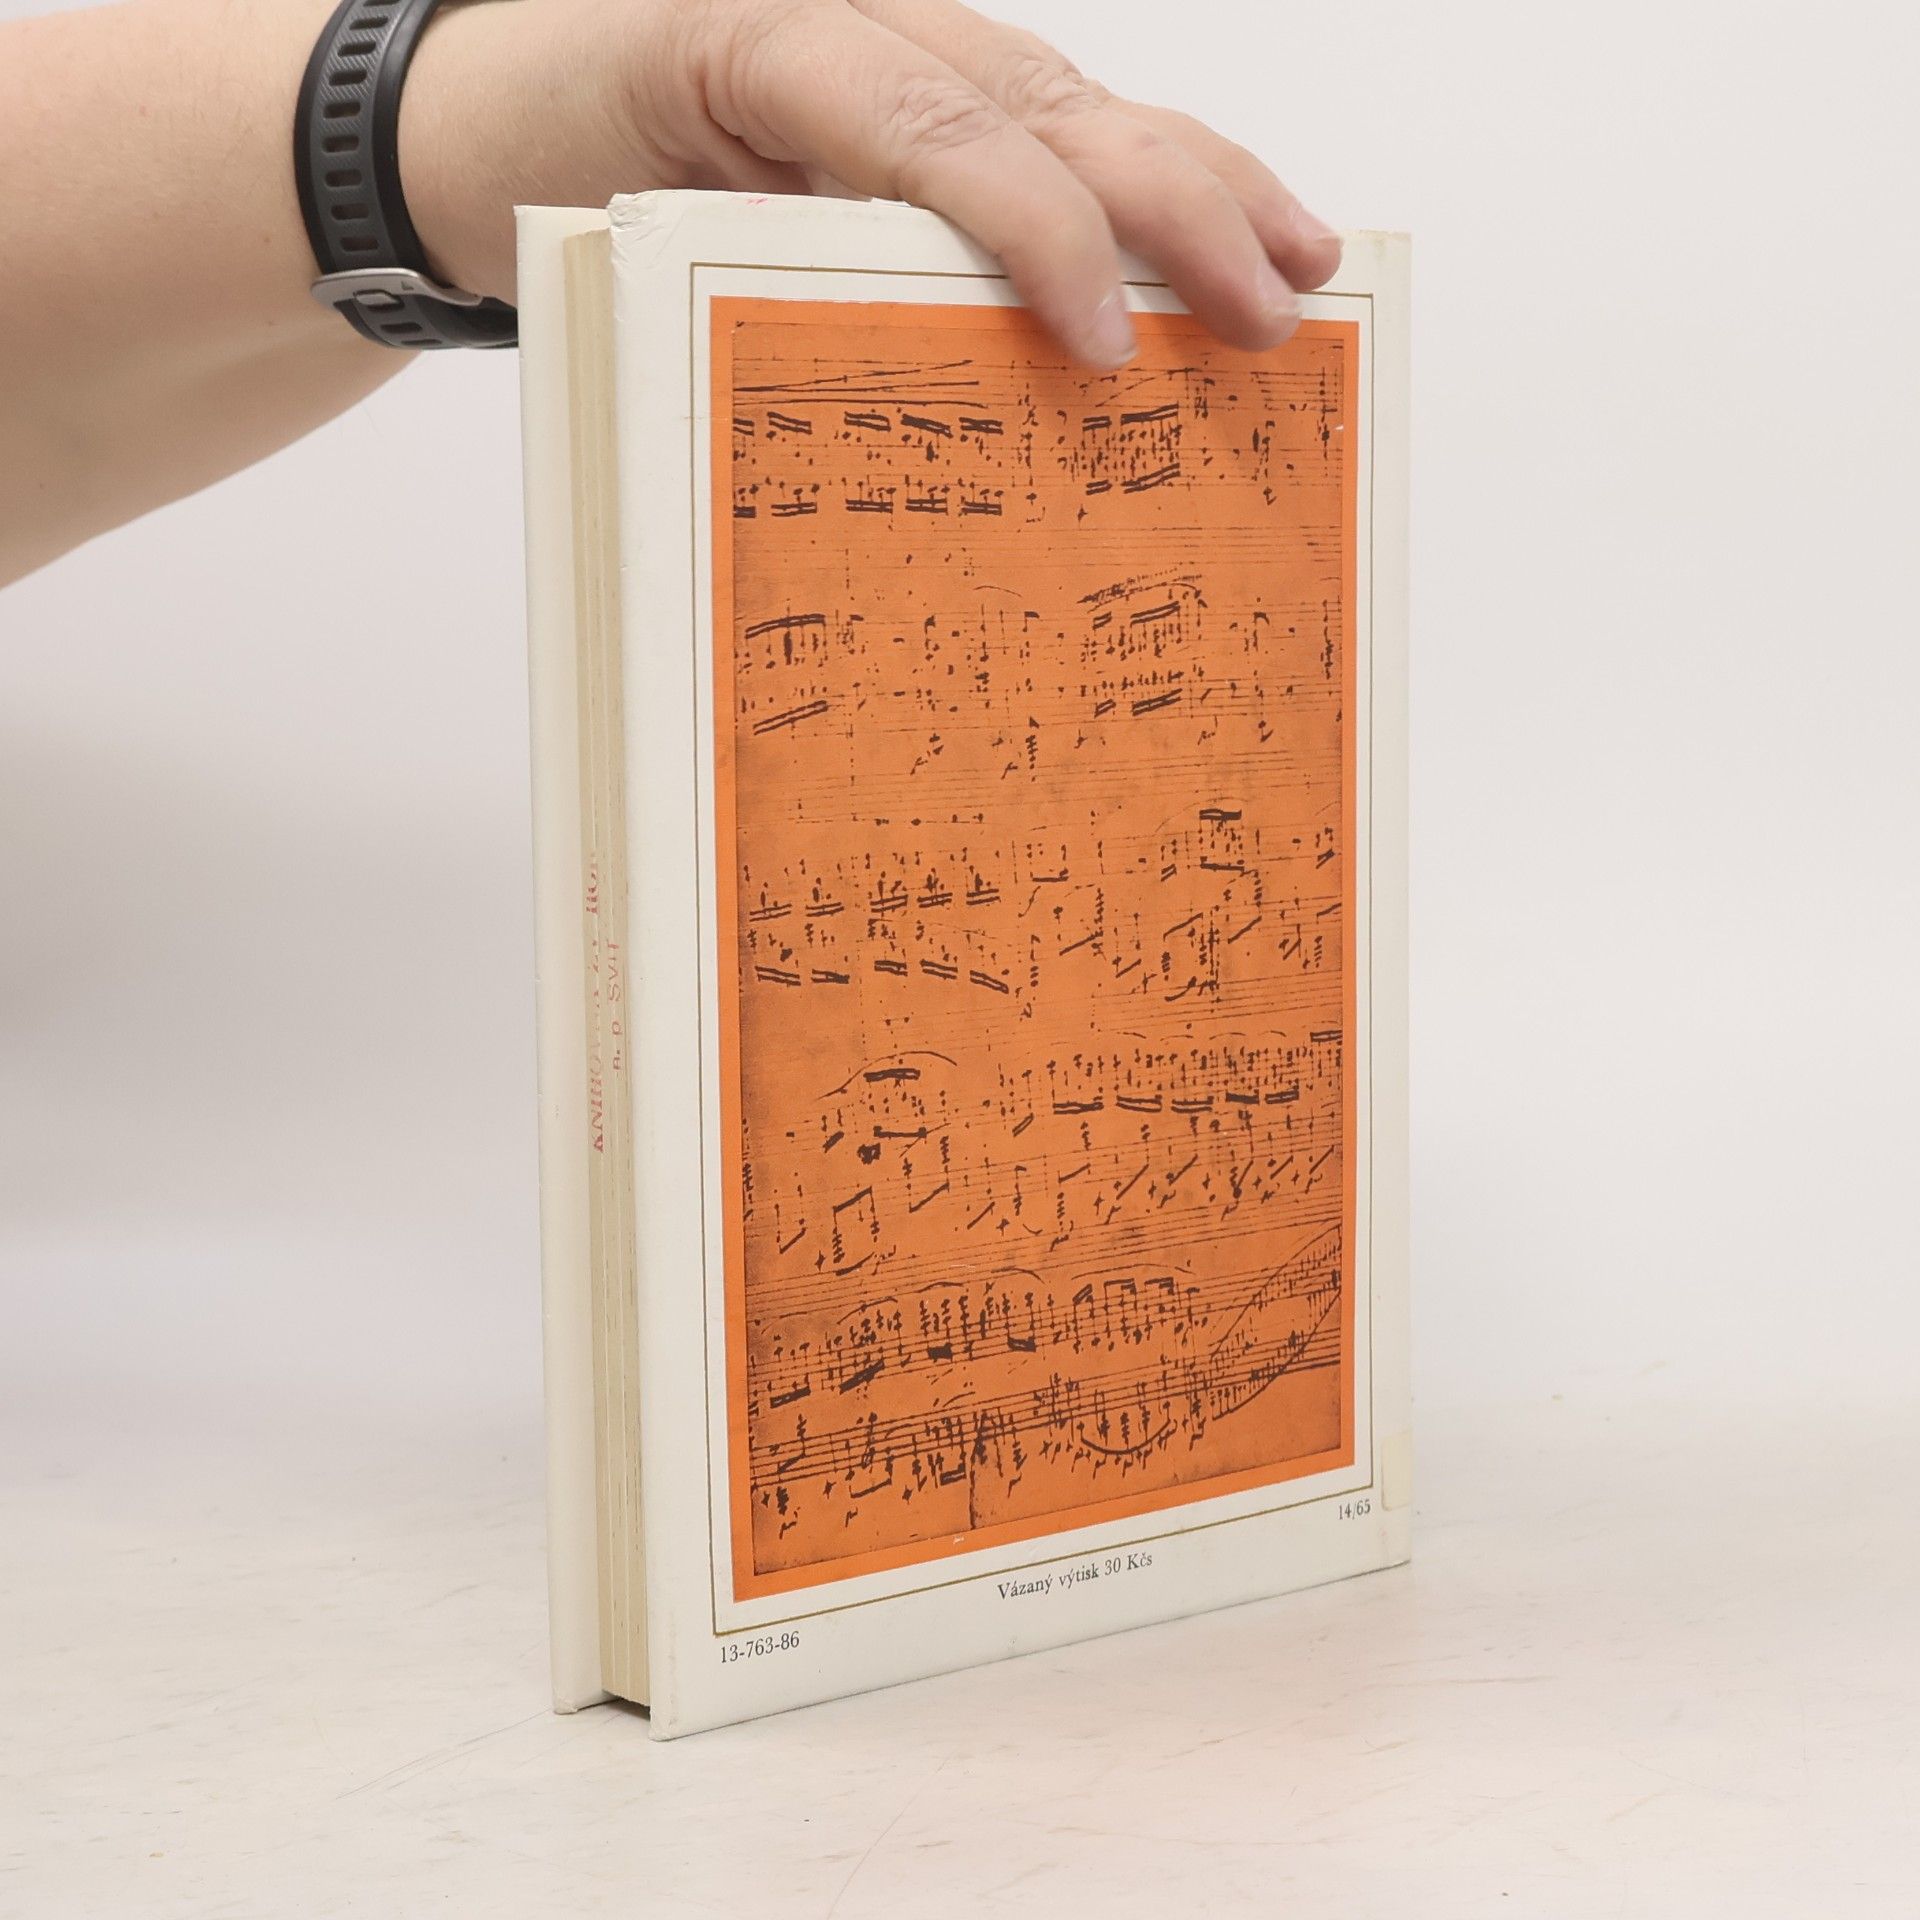 KNIHOVNA ZV ROH
n. p. SVIT
14/65
Vázaný výtisk 30 Kčs
13-763-86